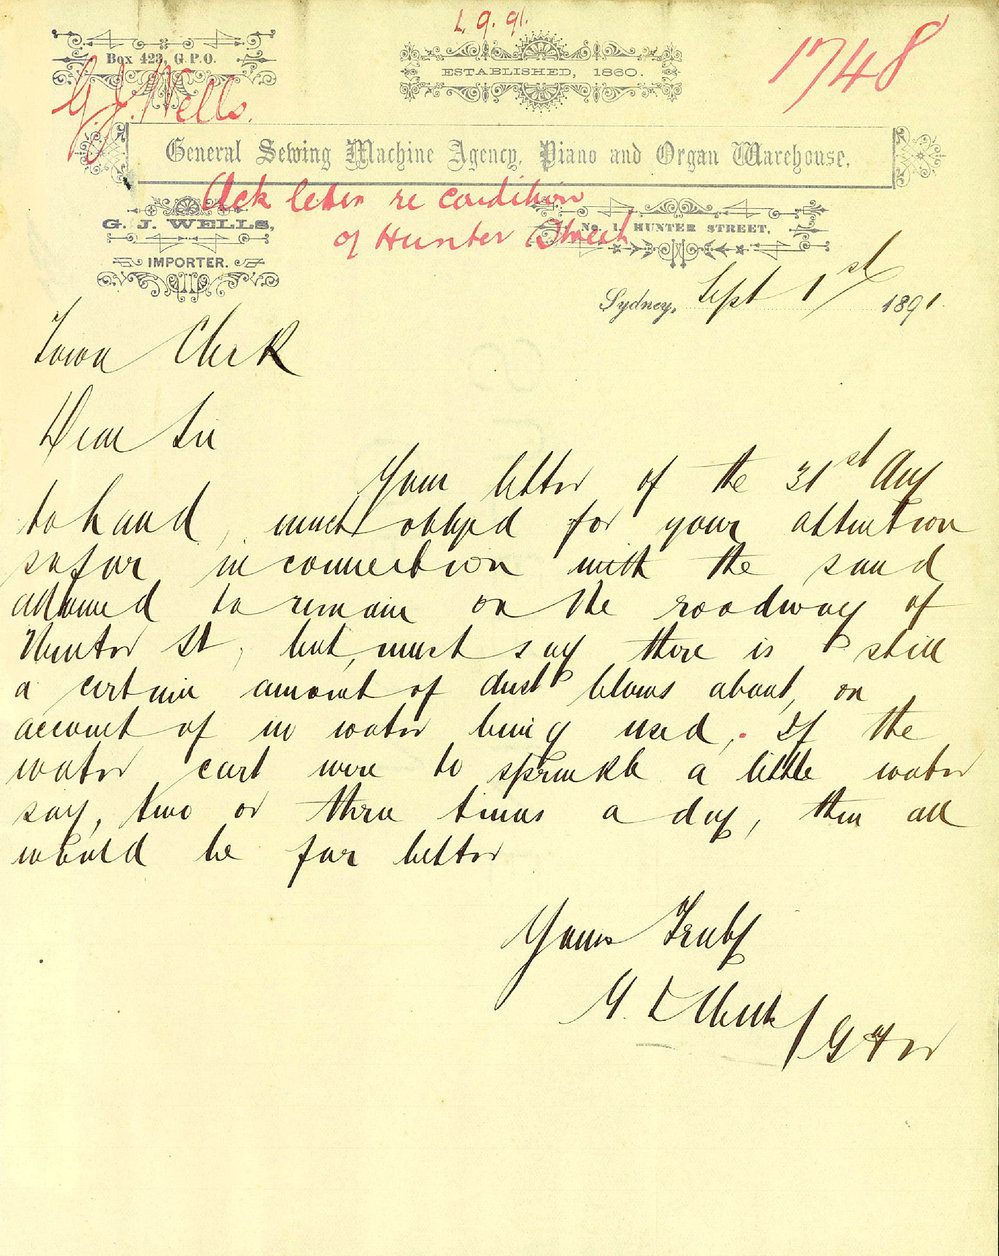 1.9.91.
1748
Box 423, G.P.O.
ESTABLISHED, 1860.
G. J. Wells.
General Sewing Machine Agency, Piano and Organ Warehouse.
Ack letter re condition
of Hunter Street
G. J. WELLS,
IMPORTER.
No. 1, HUNTER STREET,
Sydney, Sept 1st 1891.
Town Clerk
Dear Sir
Your letter of the 31st Aug
to hand, much obliged for your attention
so far in connection with the sand
allowed to remain on the roadway of
Hunter St, but must say there is still
a certain amount of dust blows about, on
account of no water being used, If the
water cart were to sprinkle a little water
say, two or three times a day, then all
would be far better
Yours Truly
G. J. Wells